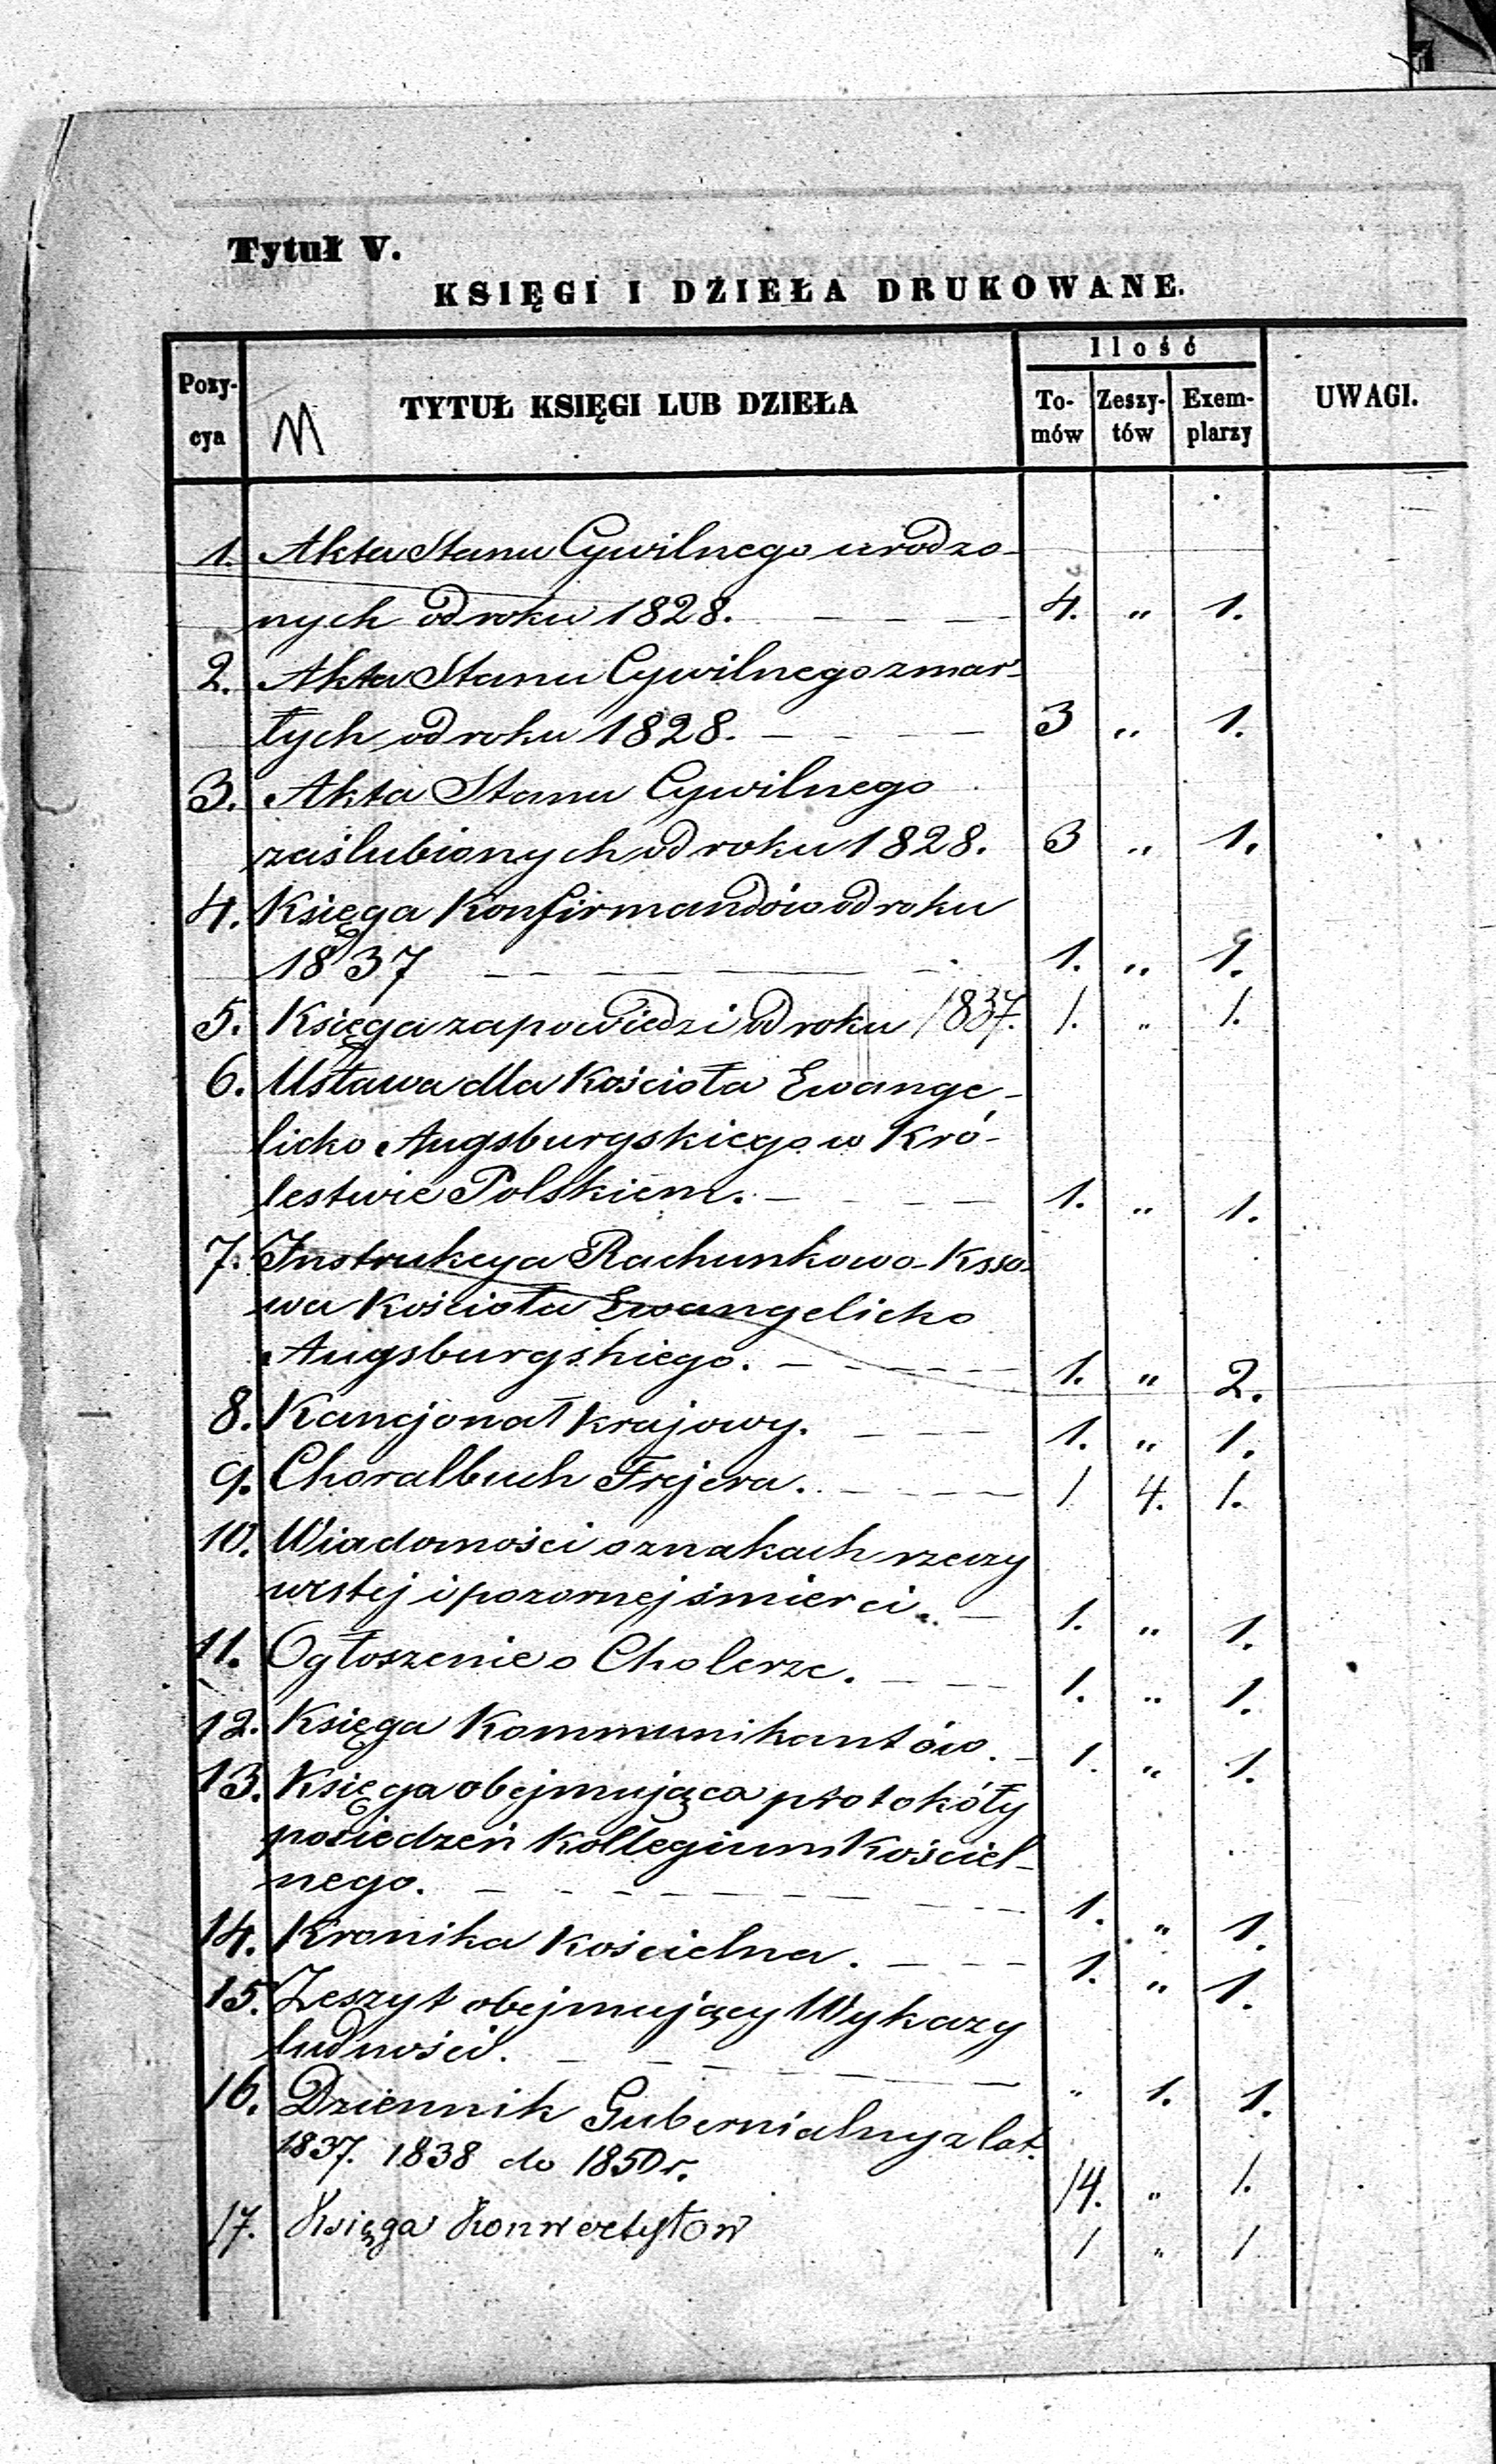 Tytuł V.
KSIĘGI I DZIEŁA DRUKOWANE.
Pozy-
cya
TYTUŁ KSIĘGI LUB DZIEŁA
Ilość
To-
mów
Zeszy-
tów
Exem-
plarzy
UWAGI.
1. Akta Stanu Cywilnego urodzo-
nych od roku 1828. 4. „ 1.
2. Akta Stanu Cywilnego zmar-
łych od roku 1828. 3 „ 1.
3. Akta Stanu Cywilnego
zaślubionych od roku 1828. 3 „ 1.
4. Księga Konfirmandów od roku
1837 1. „ 1.
5. Księga zapowiedzi od roku 1837. 1. „ 1.
6. Ustawa dla Kościoła Ewange-
licko Augsburgskiego w Kró-
lestwie Polskiem. 1. „ 1.
7. Instrukcya Rachunkowo-Ksso-
wa Kościoła Ewangelicko
Augsburgskiego. 1. „ 2.
8. Kancjonał krajowy. 1. „ 1.
9. Choralbuch Frejera. 1 4. 1.
10. Wiadomości o znakach rzeczy
wistej i pozornej śmierci. 1. „ 1.
11. Ogłoszenie o Cholerze. 1. „ 1.
12. Księga Kommunikantów. 1. „ 1.
13. Księga obejmująca protokóły
posiedzeń Kollegium Kościel-
nego. 1. „ 1.
14. Kronika Kościelna. 1. „ 1.
15. Zeszyt obejmujący Wykazy
ludności. „ 1. 1.
16. Dziennik Gubernialny z lat.
1837. 1838 do 1850 r. 14. „ 1.
17. Księga Konwertytów 1 „ 1